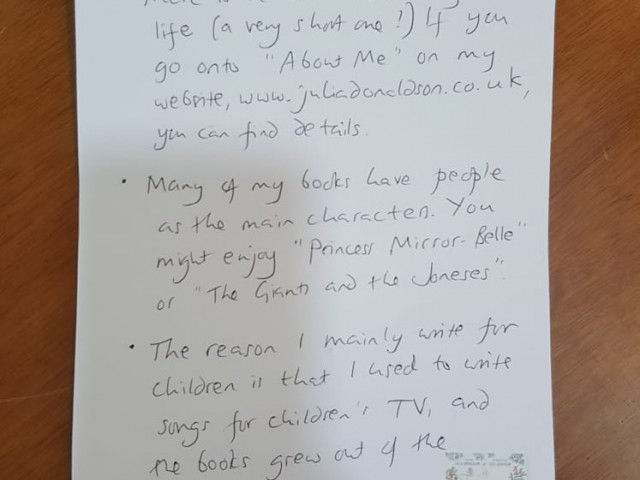 life (a very short one!) If you
go onto "About Me" on my
website, www.juliadonaldson.co.uk,
you can find details.
• Many of my books have people
as the main characters. You
might enjoy "Princess Mirror-Belle"
or "The Giants and the Joneses".
• The reason I mainly write for
children is that I used to write
songs for children's TV, and
the books grew out of the